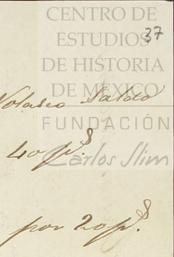 CENTRO DE
ESTUDIOS
DE HISTORIA
DE MÉXICO
FUNDACIÓN
Carlos Slim
37
Nolasco Saldo
40 p.s
por 20 p.s